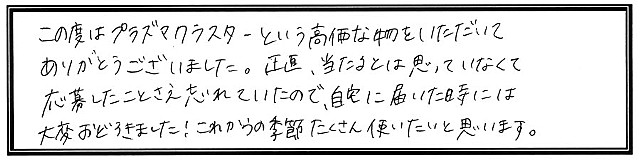 この度はプラズマクラスターという高価な物をいただいて
ありがとうございました。正直、当たるとは思っていなくて
応募したことさえ忘れていたので、自宅に届いた時には
大変おどろきました！これからの季節たくさん使いたいと思います。